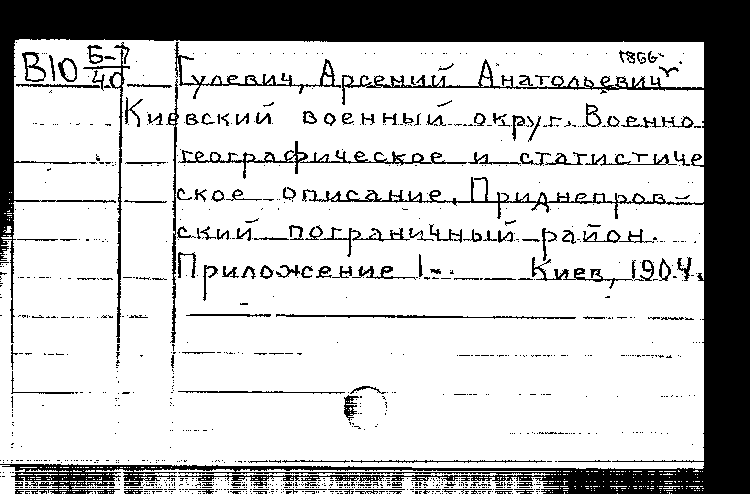 1866-
В10 Б-7/40 Гулевич, Арсений Анатольевич
Киевский военный округ. Военно-
географическое и статистиче
ское описание. Приднепров-
ский пограничный район.
Приложение 1-. Киев, 1904.